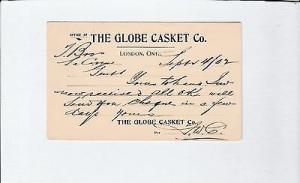 OFFICE OF THE GLOBE CASKET Co.
LONDON, ONT. Sept 4/02
T. Ross
Yours to hand
now received & all OK will
send you cheque in a few
days yours
THE GLOBE CASKET Co.
Per